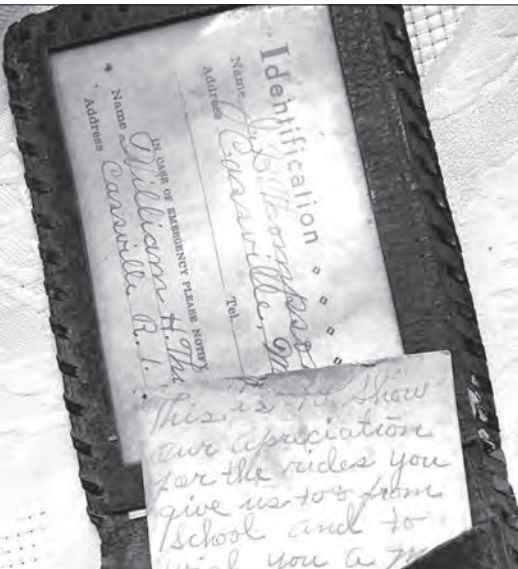 Identification
Name J. D. Thompso
Address Cassville, M
Tel.
IN CASE OF EMERGENCY PLEASE NOTIFY
Name William H. Th
Address Cassville R. 1.
This is to show
our apreciation
for the rides you
give us to & from
School and to
wish you a m